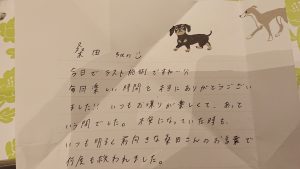 桑田 さん
今日でラスト施術ですね…
毎回楽しい時間を本当にありがとうござい
ました!! いつもお喋りが楽しくて、あって
いう間でした。 本気になっていた時も、
いつも明るく前向きな桑田さんのお言葉で
何度も救われました。